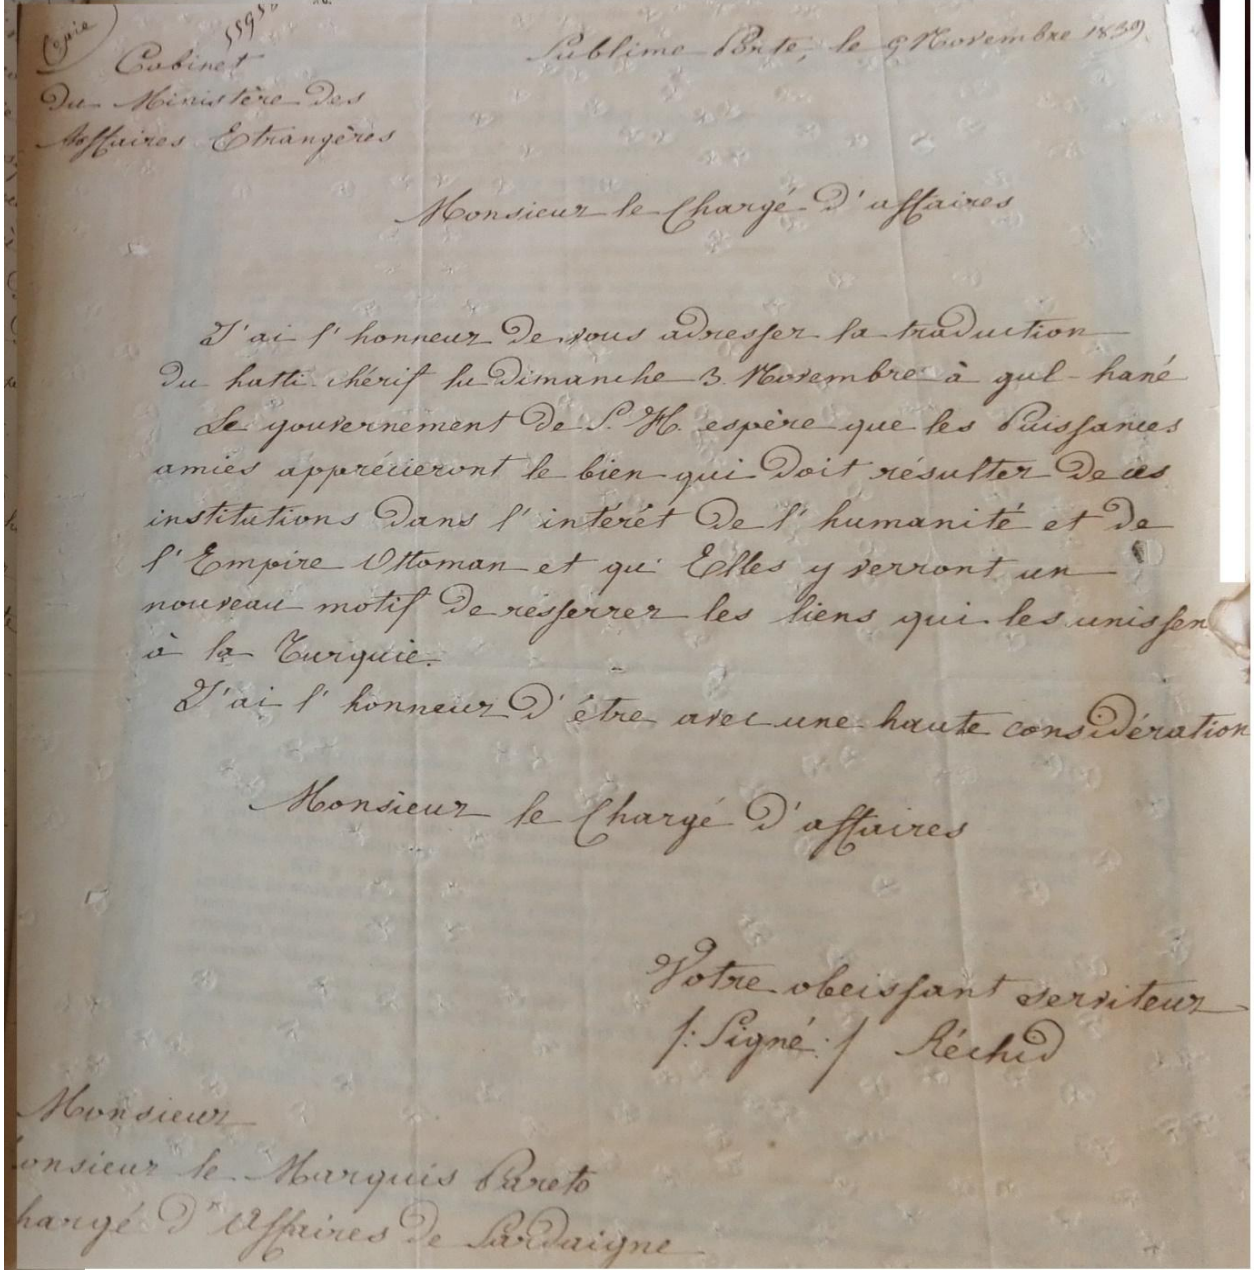 Copie
Cabinet
Du Ministère des
Affaires Etrangères
Sublime Porte, le 9 Novembre 1839
Monsieur le Chargé d'affaires
J'ai l'honneur de vous adresser la traduction
du hatti-chérif lu Dimanche 3 Novembre à gul-hané
Le gouvernement de S. H. espère que les Puissances
amies apprécieront le bien qui doit résulter de ces
institutions dans l'intérêt de l'humanité et de
l'Empire Ottoman et qu'Elles y verront un
nouveau motif de resserrer les liens qui les unissen
à la Turquie.
J'ai l'honneur d'être avec une haute considération
Monsieur le Chargé d'affaires
Votre obeissant serviteur
/: Signé :/ Réchid
Monsieur
onsieur le Marquis Pareto
hargé d'Affaires de Sardaigne